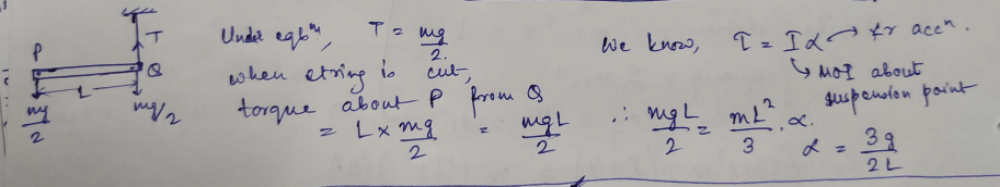 P
T
Q
L
mg/2
mg/2
Under eqbᵐ, T = mg/2.
when string is cut,
torque about P from Q
= L × mg/2 = mgL/2
We know, τ = Iα → ∠r accⁿ.
↳ MOI about
suspension point
∴ mgL/2 = mL²/3 . α.
α = 3g/2L